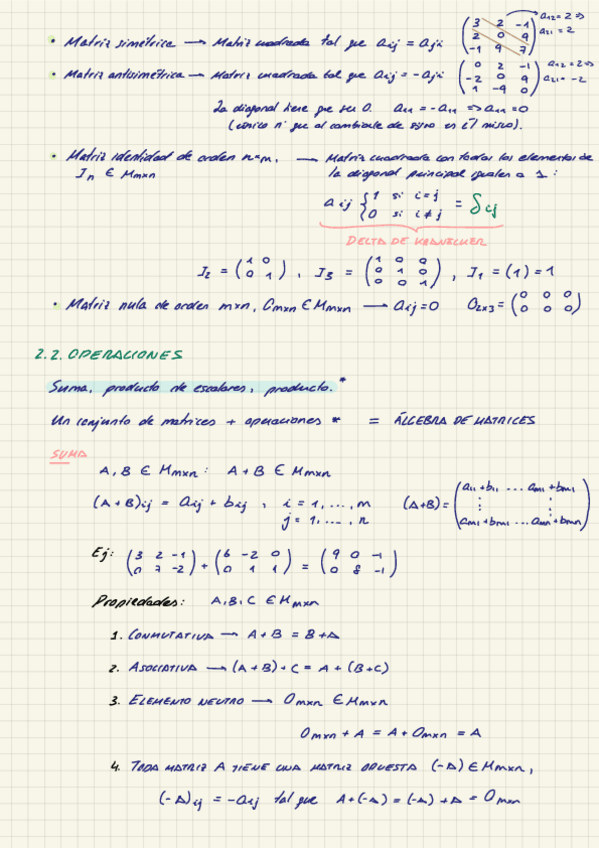 • Matriz simétrica → Matriz cuadrada tal que aij = aji (3 2 -1 / 2 0 9 / -1 9 7) a12 = 2 ⇒ a21 = 2
• Matriz antisimétrica → Matriz cuadrada tal que aij = -aji (0 2 -1 / -2 0 9 / 1 -9 0) a12 = 2 ⇒ a21 = -2
La diagonal tiene que ser 0. a11 = -a11 ⇒ a11 = 0
(único nº que al cambiarle de signo es él mismo).
• Matriz identidad de orden n×m. → Matriz cuadrada con todos los elementos de
In ∈ Mm×n la diagonal principal iguales a 1:
aij { 1 si i=j / 0 si i≠j = δij
DELTA DE KRONECKER
I2 = (1 0 / 0 1), I3 = (1 0 0 / 0 1 0 / 0 0 1), I1 = (1) = 1
• Matriz nula de orden m×n, Om×n ∈ Mm×n → aij = 0 O2×3 = (0 0 0 / 0 0 0)
2.2. OPERACIONES
Suma, producto de escalares, producto.*
Un conjunto de matrices + operaciones * = ÁLGEBRA DE MATRICES
SUMA
A, B ∈ Mm×n : A + B ∈ Mm×n
(A+B)ij = aij + bij , i = 1, ..., m (A+B) = (a11 + b11 ... am1 + bm1 / ⋮ ⋮ / am1 + bm1 ... amn + bmn)
j = 1, ..., n
Ej: (3 2 -1 / 0 7 -2) + (6 -2 0 / 0 1 1) = (9 0 -1 / 0 8 -1)
Propiedades: A, B, C ∈ Mm×n
1. CONMUTATIVA → A + B = B + A
2. ASOCIATIVA → (A + B) + C = A + (B + C)
3. ELEMENTO NEUTRO → Om×n ∈ Mm×n
Om×n + A = A + Om×n = A
4. TODA MATRIZ A TIENE UNA MATRIZ OPUESTA (-A) ∈ Mm×n,
(-A)ij = -aij tal que A + (-A) = (-A) + A = Om×n